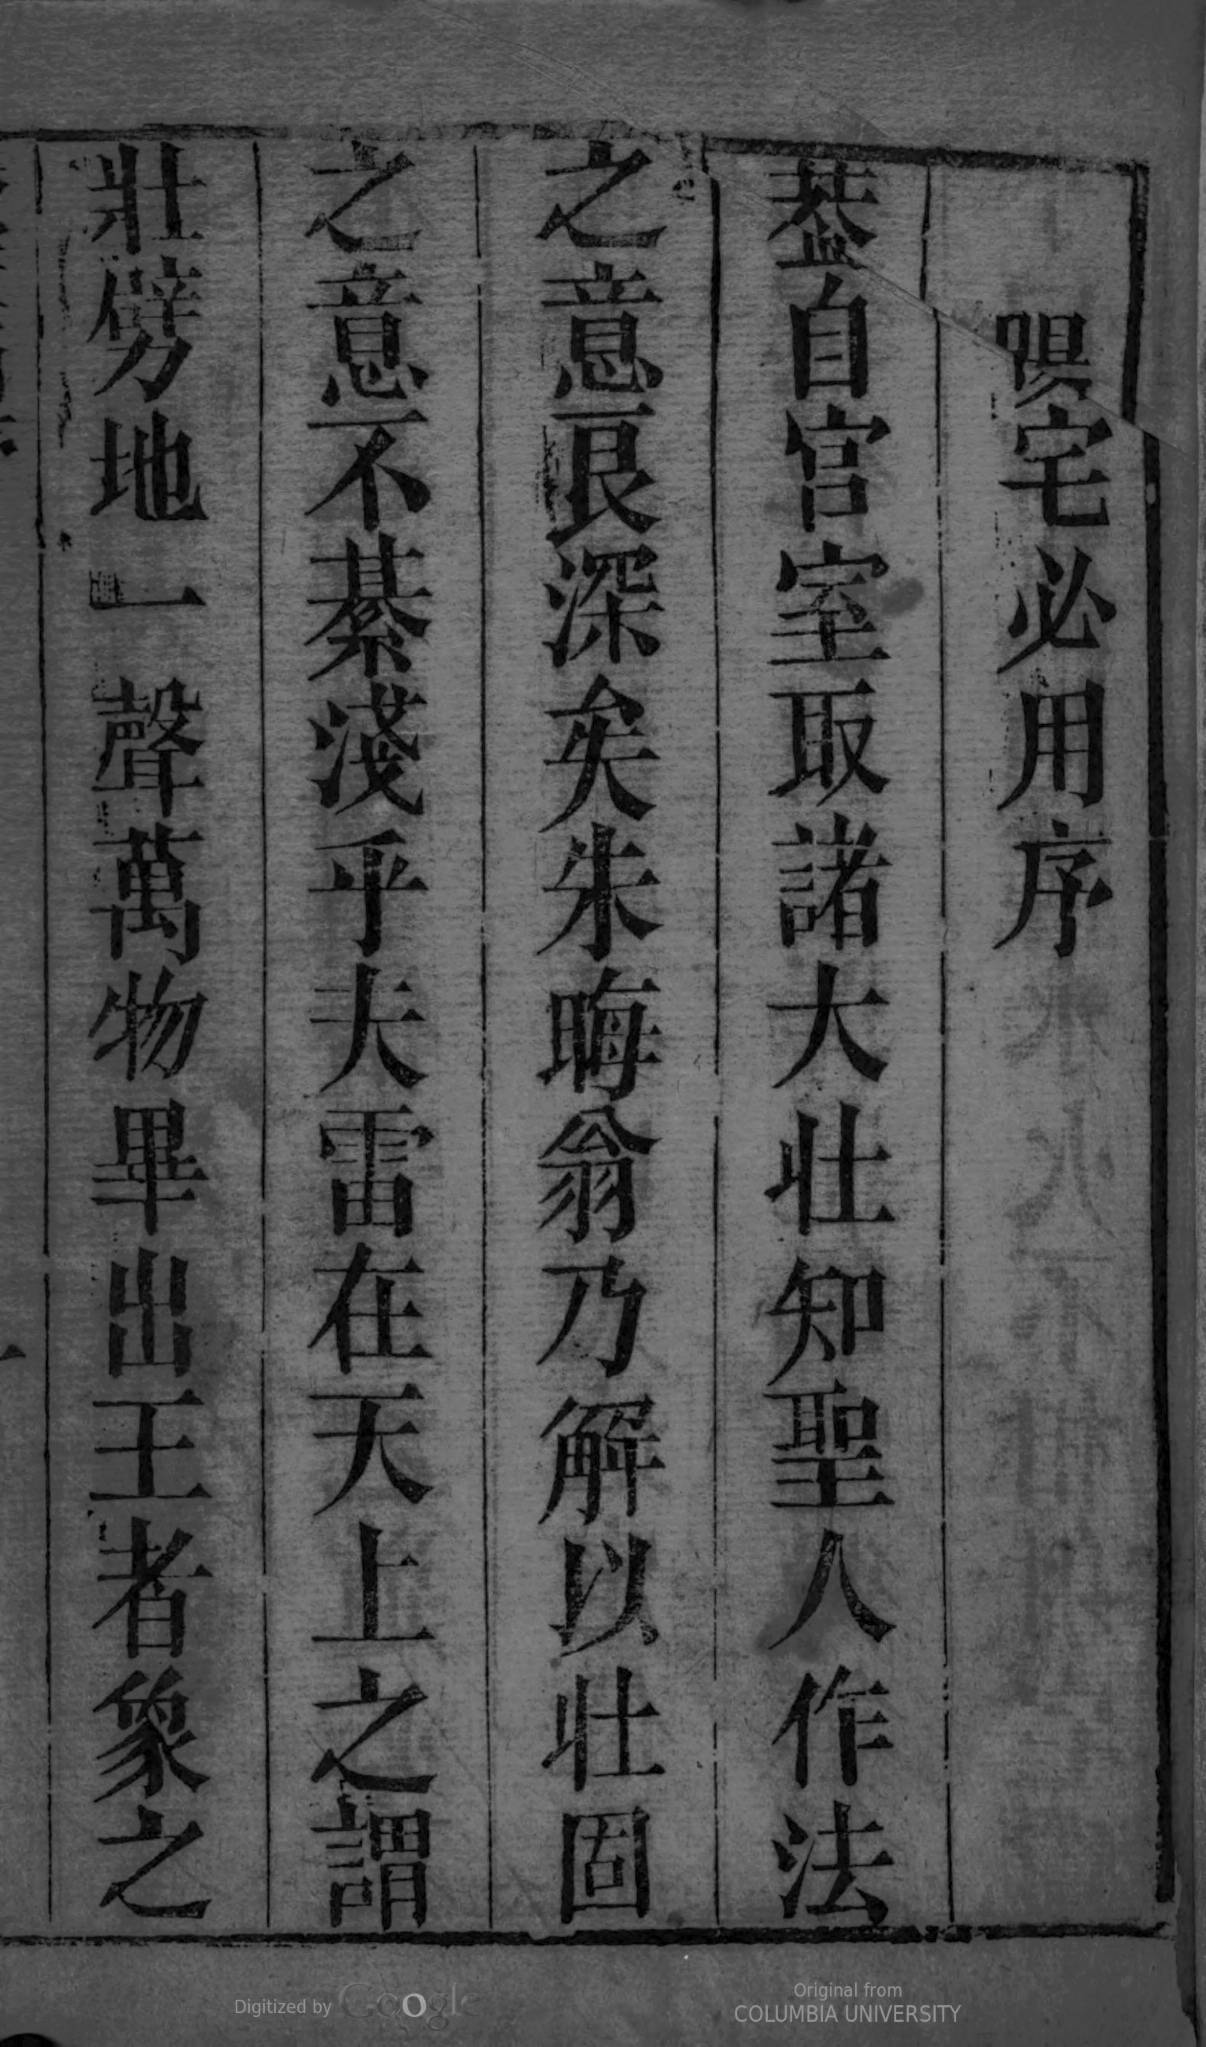 陽宅必用序
葢自宫室取諸大壮知聖人作法
之意良深矣朱晦翁乃解以壮固
之意不綦淺乎夫雷在天上之謂
壯劈地一聲萬物畢出王者象之
Digitized by Google
Original from
COLUMBIA UNIVERSITY